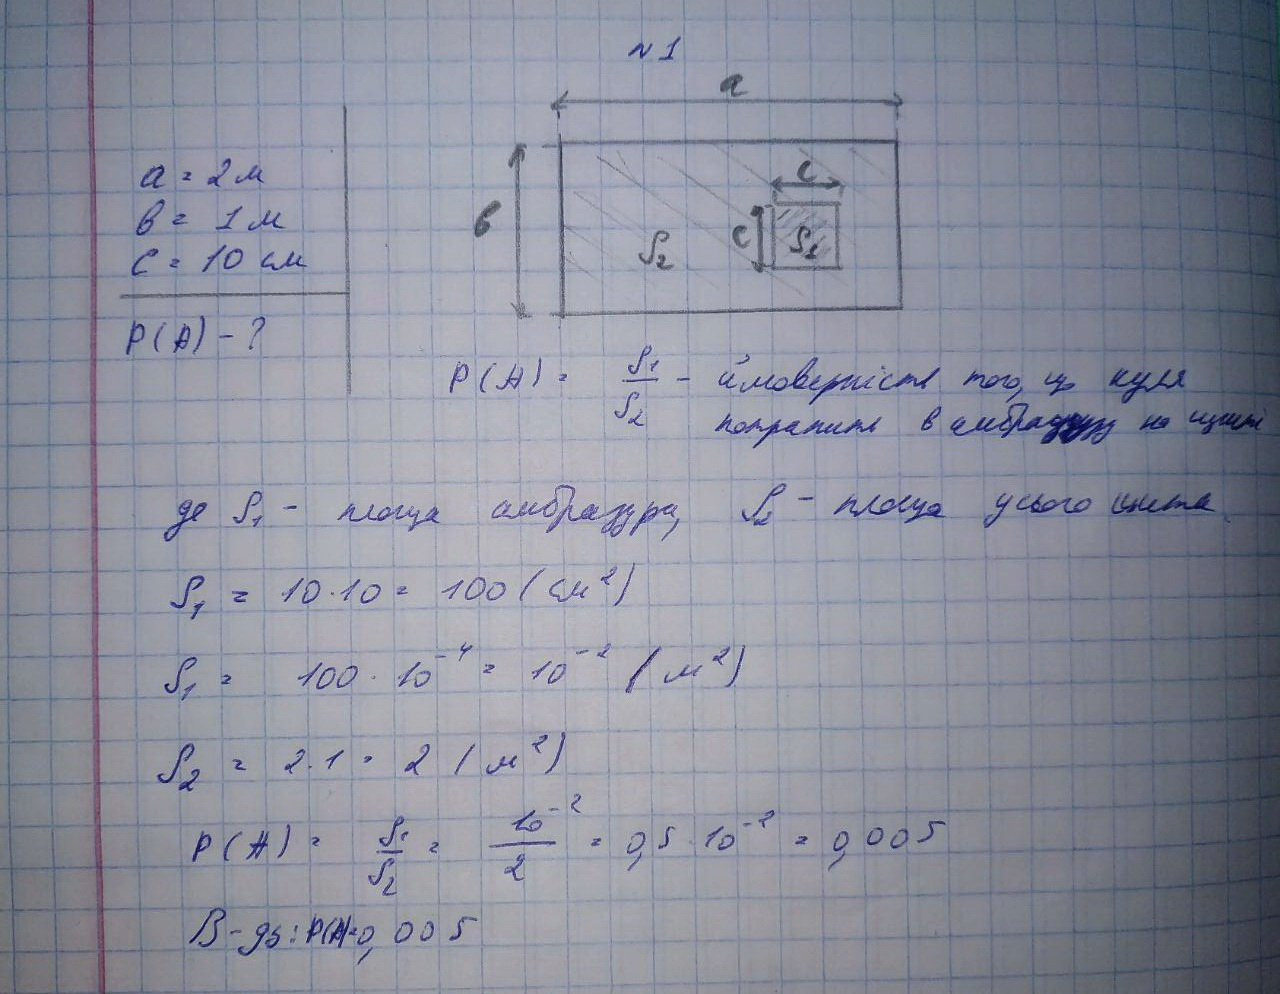 №1
a
a = 2 м
в = 1 м
c = 10 см
P(A) - ?
в
c
c
S₂
S₁
P(A) = S₁/S₂ - ймовірність того, що куля
потрапить в амбразуру на щиті
де S₁ - площа амбразури, S₂ - площа усього щита
S₁ = 10·10 = 100 (см²)
S₁ = 100·10⁻⁴ = 10⁻² (м²)
S₂ = 2·1 = 2 (м²)
P(A) = S₁/S₂ = 10⁻²/2 = 0,5·10⁻² = 0,005
В-дь: P(A)=0,005